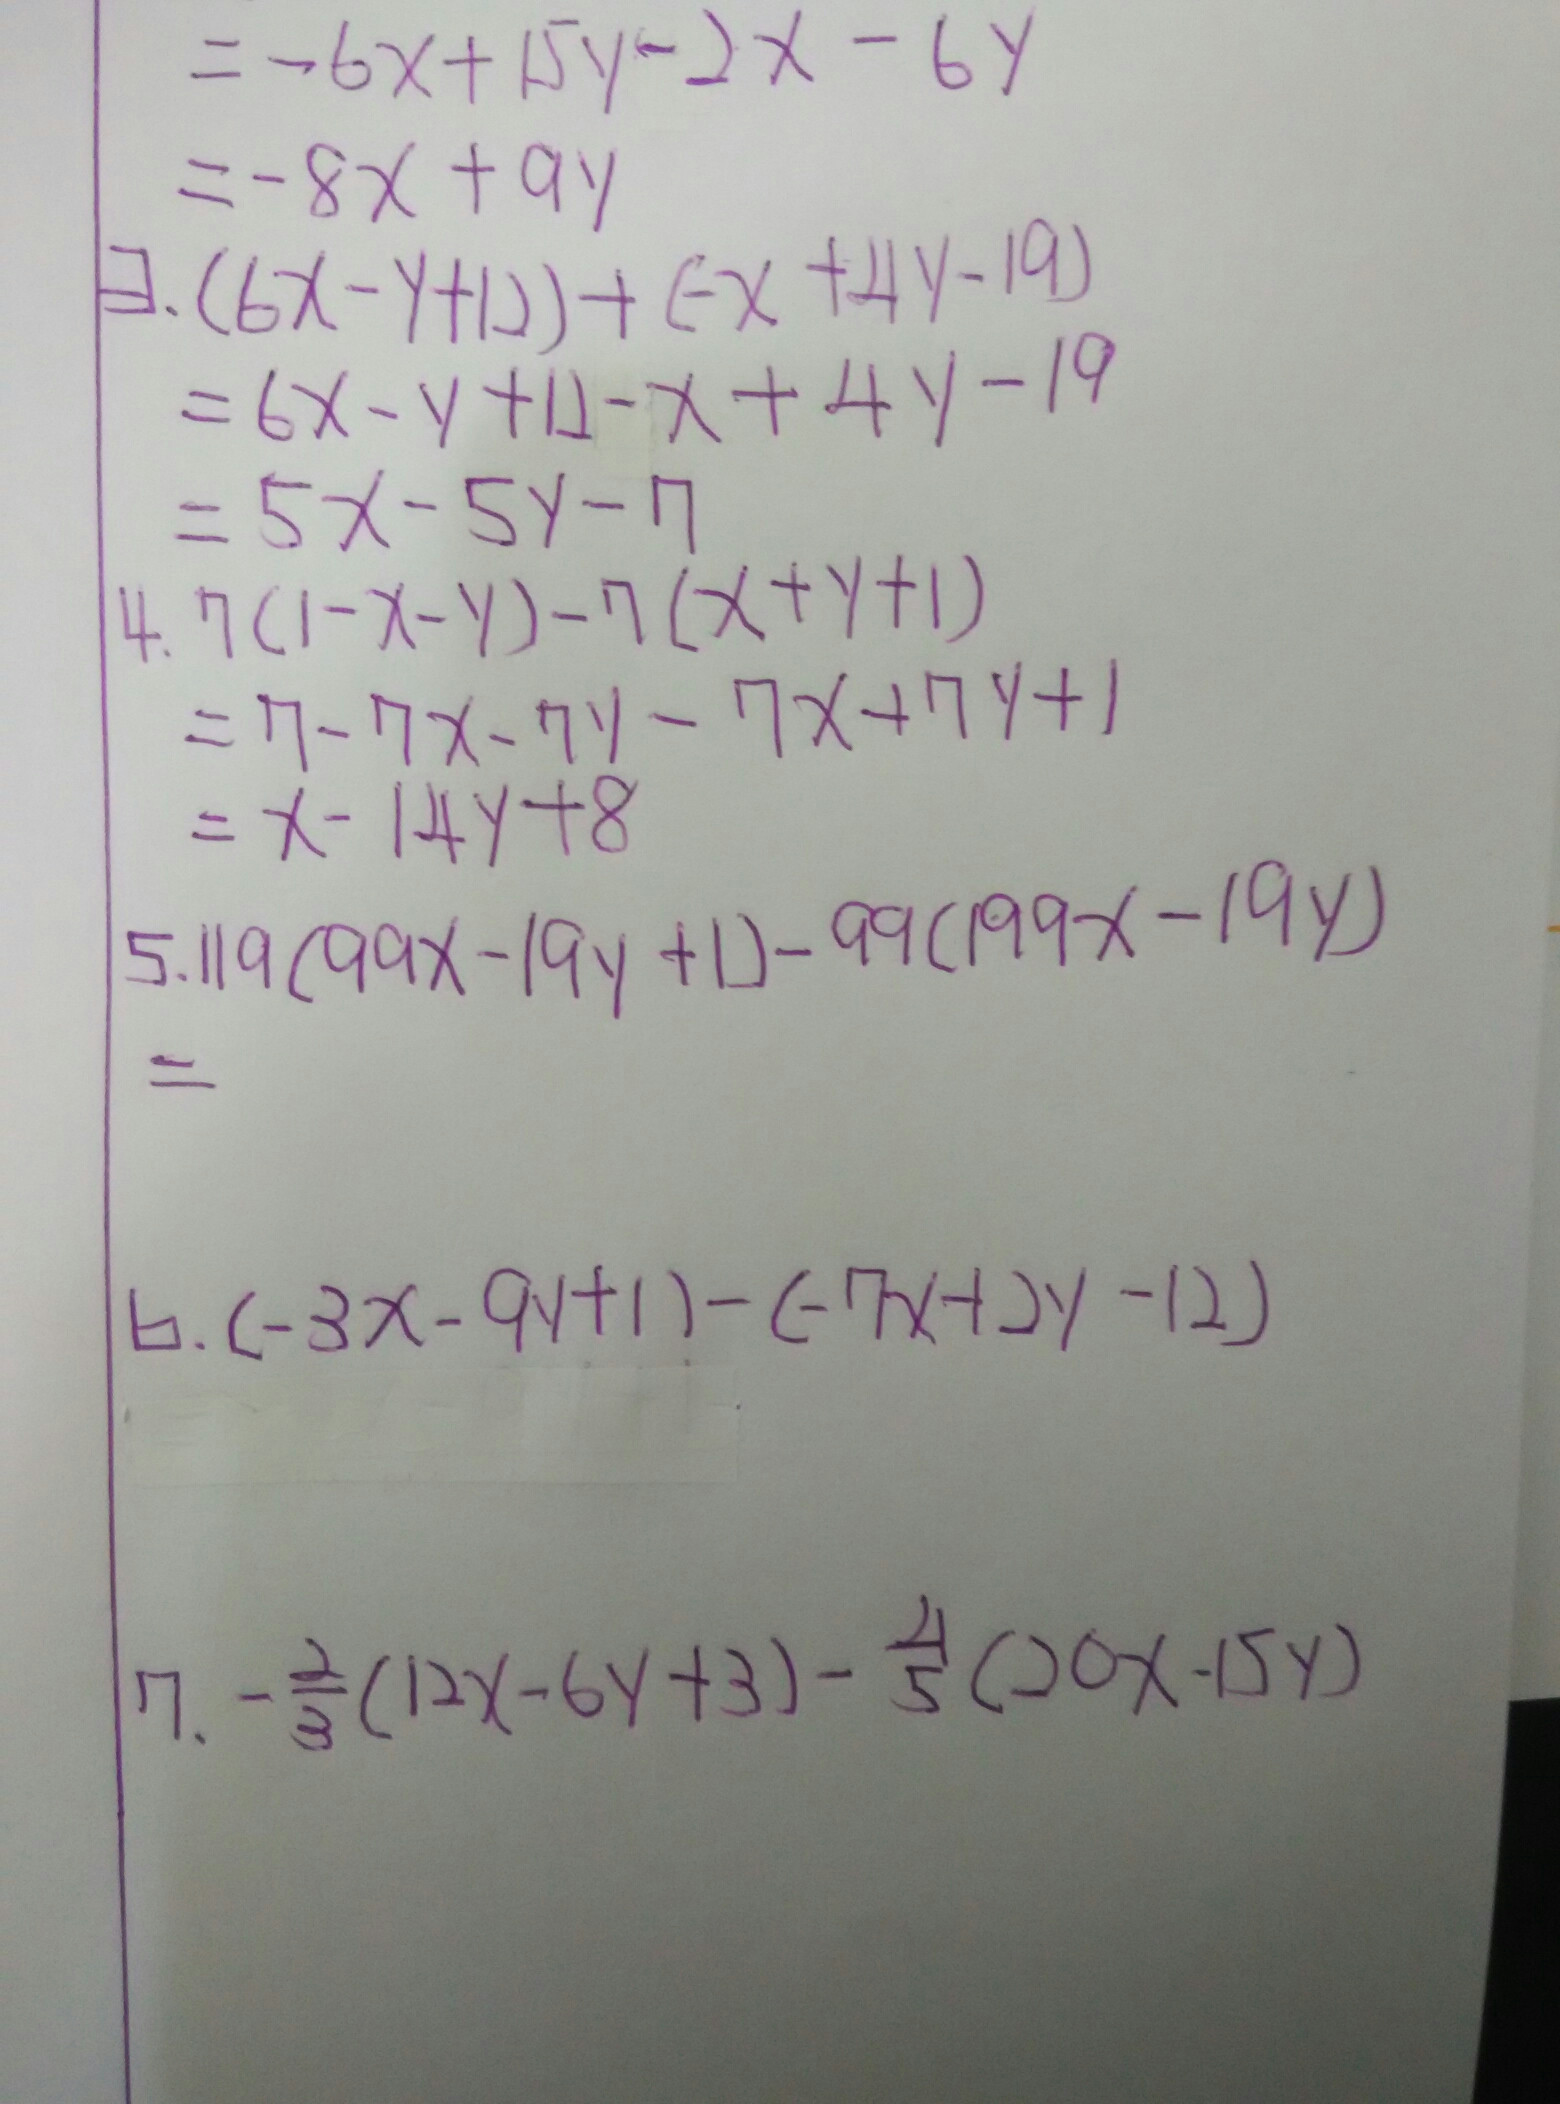 = -6x + 15y - 2x - 6y
= -8x + 9y
3. (6x - y + 12) + (-x + 4y - 19)
= 6x - y + 12 - x + 4y - 19
= 5x - 5y - 7
4. 7(1 - x - y) - 7(x + y + 1)
= 7 - 7x - 7y - 7x + 7y + 1
= x - 14y + 8
5. 119(99x - 19y + 12) - 99(199x - 19y)
=
6. (-3x - 9y + 1) - (-7x + 2y - 12)
7. -2/3(12x - 6y + 3) - 4/5(20x - 15y)